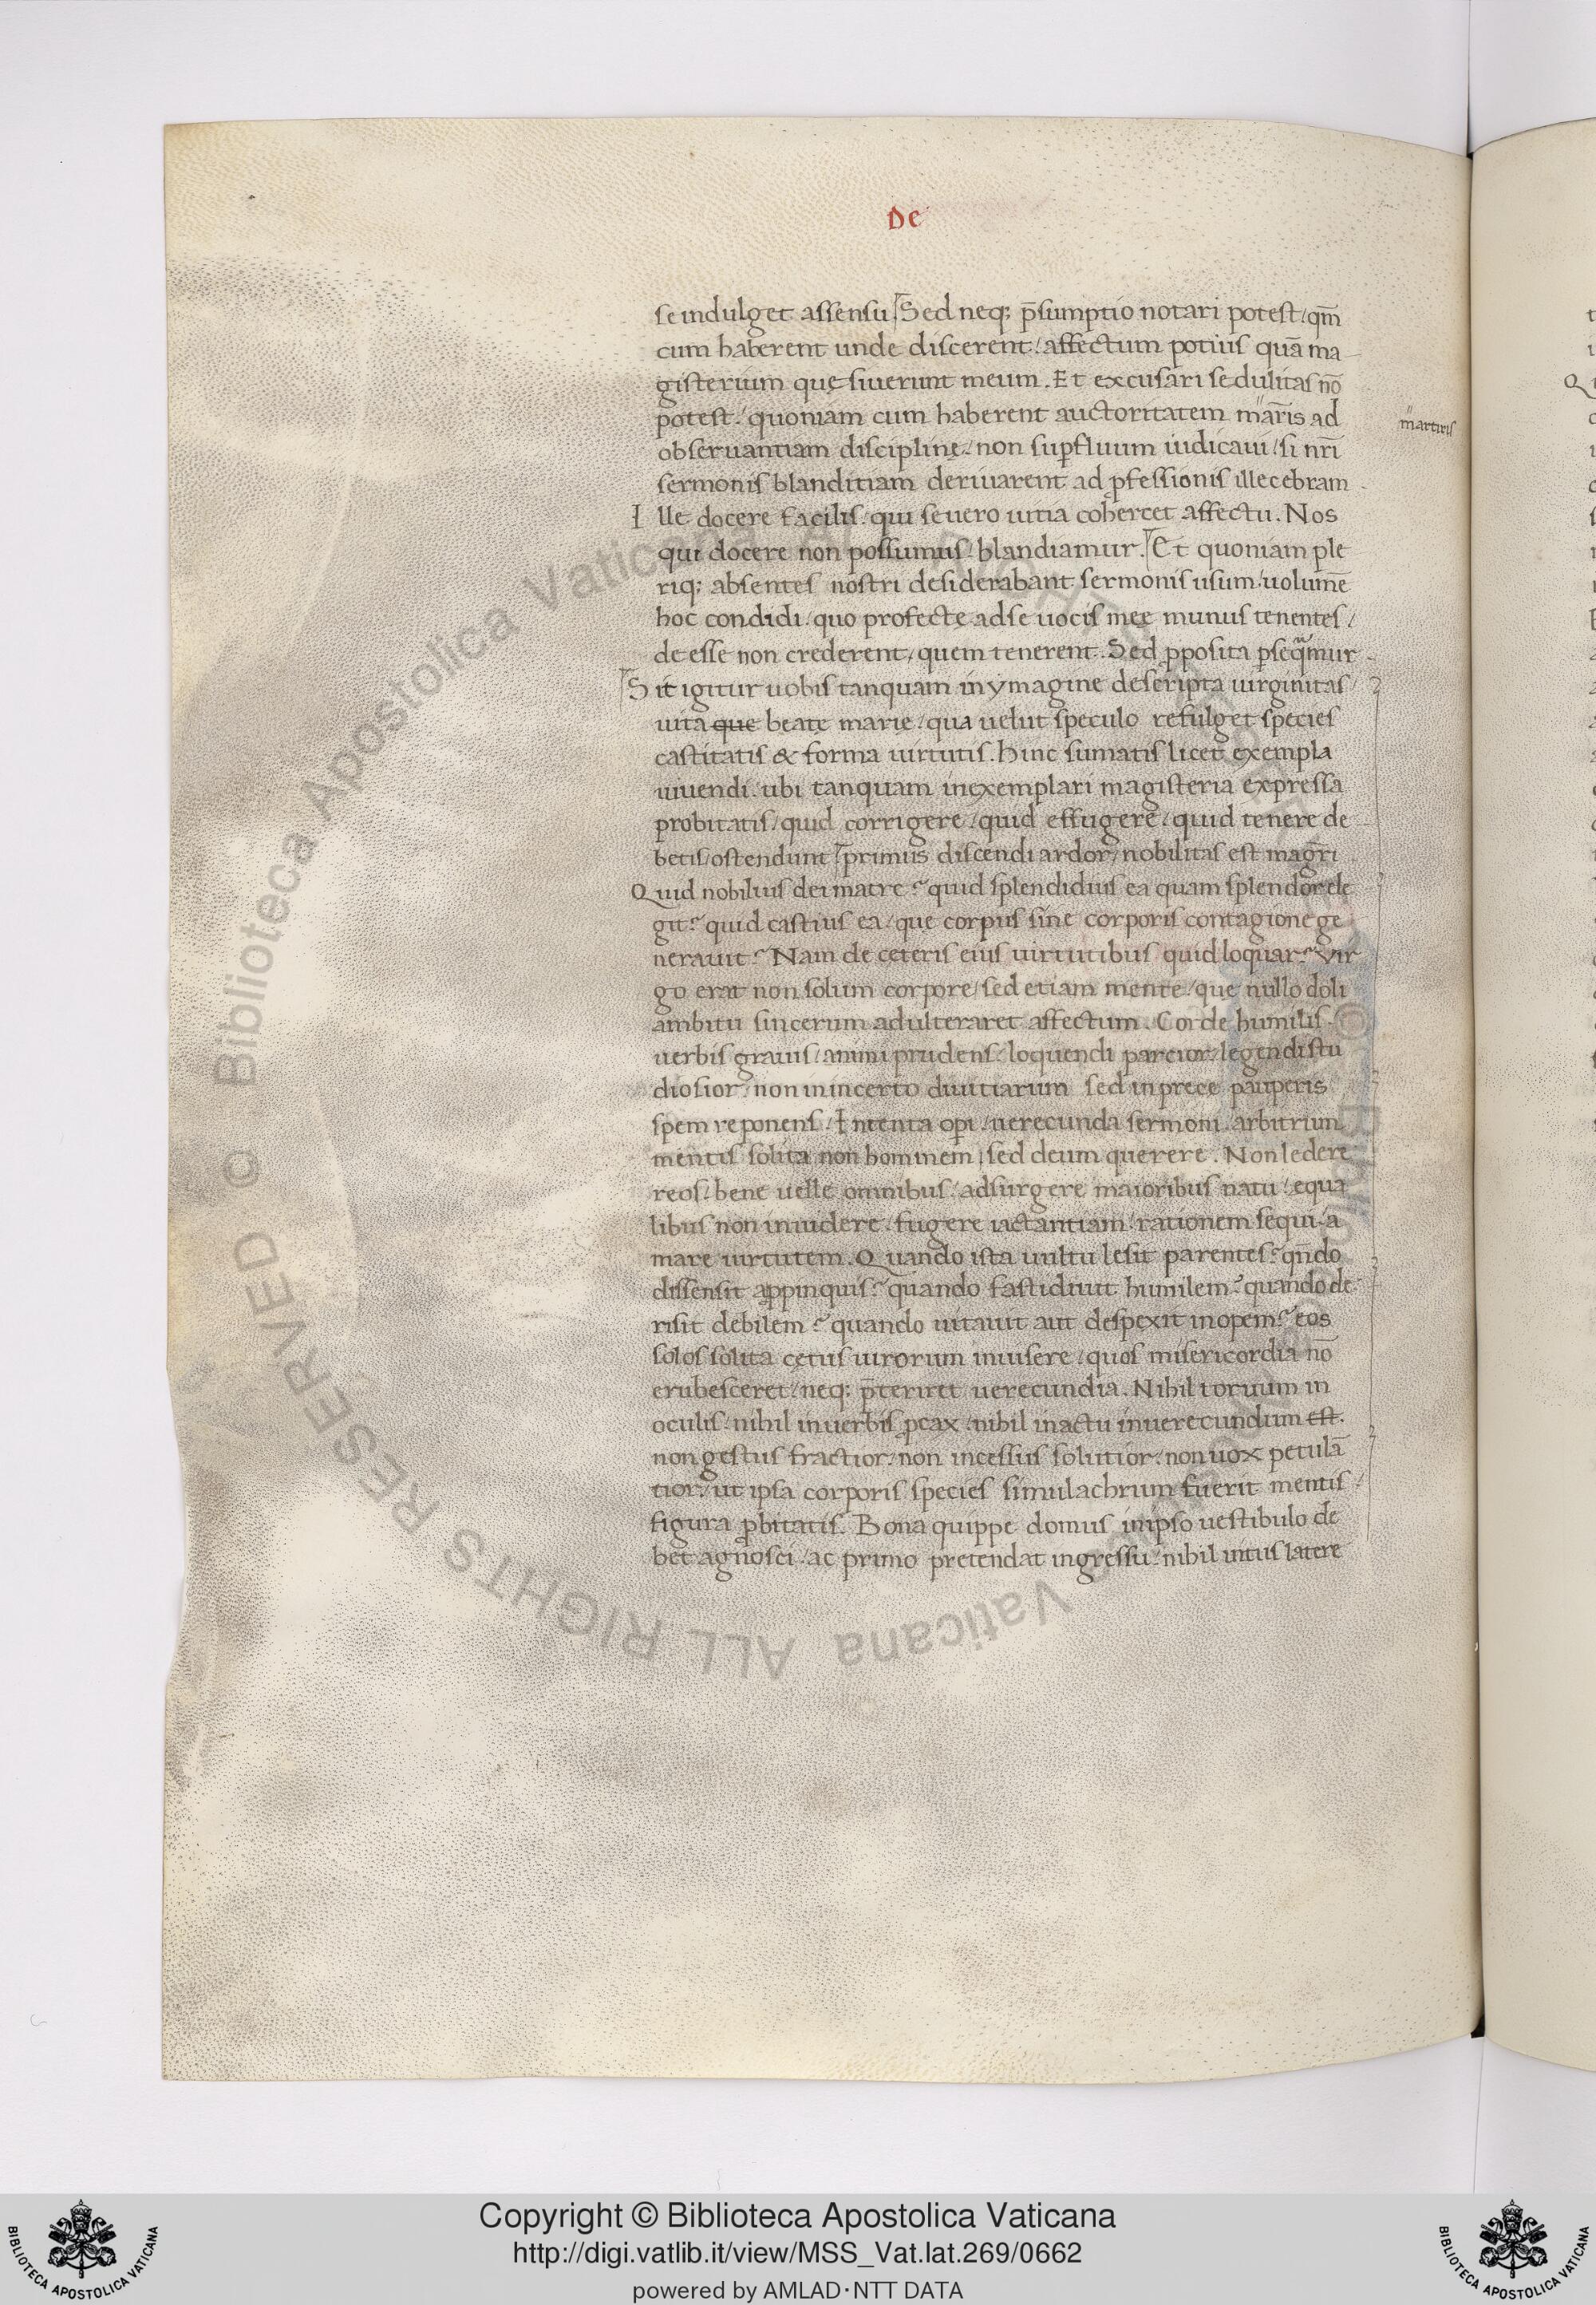 De
se indulget assensu. Sed neq; p̄sumptio notari potest/ qm̄
cum haberent unde discerent/ affectum potius quā ma-
gisterium quęsiuerunt meum. Et excusari sedulitas nō
potest/ quoniam cum haberent auctoritatem mar̄is ad
martiris
obseruantiam disciplinę/ non suꝑfluum iudicaui/ si nr̄i
sermonis blanditiam deriuarent ad ꝓfessionis illecebram.
Ille docere facilis/ qui seuero uitia cohercet affectu. Nos
qui docere non possumus/ blandiamur. Et quoniam ple
riq; absentes nostri desiderabant sermonis usum/ uolumē
hoc condidi/ quo profectę ad se uocis meę munus tenentes/
de esse non crederent/ quem tenerent. Sed ꝓposita ꝑseq̄mur.
Sit igitur uobis tanquam in ymagine descripta uirginitas/
uita que beatę marię/ qua uelut speculo refulget species
castitatis & forma uirtutis. Hinc sumatis licet exempla
uiuendi/ ubi tanquam in exemplari magisteria expressa
probitatis/ quid corrigere/ quid effugere/ quid tenere de
betis/ ostendunt. primus discendi ardor/ nobilitas est magr̄i
Quid nobilius dei matre? quid splendidius ea quam splendor ele
git? quid castius ea/ que corpus sine corporis contagione ge
nerauit? Nam de ceteris eius uirtutibus quid loquar? Vir
go erat non solum corpore/ sed etiam mente/ que nullo doli
ambitu sincerum adulteraret affectum. Corde humilis/
uerbis grauis/ animi prudens/ loquendi parcior/ legendi stu
diosior/ non in incerto diuitiarum sed in prece pauperis
spem reponens/ Intenta oꝑi/ uerecunda sermoni/ arbitrium
mentis solita non hominem/ sed deum querere. Non ledere
reos/ bene uelle omnibus/ adsurgere maioribus natu/ equa
libus non inuidere/ fugere iactantiam/ rationem sequi/ a
mare uirtutem. Quando ista uultu lesit parentes? qn̄do
dissensit a ꝓpinquis? quando fastidiuit humilem? quando de
risit debilem? quando uitauit aut despexit inopem? eos
solos solita cętus uirorum inuisere/ quos misericordia nō
erubesceret/ neq; p̄teriret uerecundia. Nihil toruum in
oculis/ nihil in uerbis ꝓcax/ nihil in actu inuerecundum est.
non gestus fractior/ non incessus solutior/ non uox petulā
tior/ ut ipsa corporis species simulachrum fuerit mentis/
figura ꝓbitatis. Bona quippe domus in ipso uestibulo de
bet agnosci/ ac primo pretendat ingressu/ nihil intus latere
Copyright © Biblioteca Apostolica Vaticana
http://digi.vatlib.it/view/MSS_Vat.lat.269/0662
powered by AMLAD·NTT DATA
BIBLIOTECA APOSTOLICA VATICANA
BIBLIOTECA APOSTOLICA VATICANA
© Biblioteca Apostolica Vaticana ALL RIGHTS RESERVED